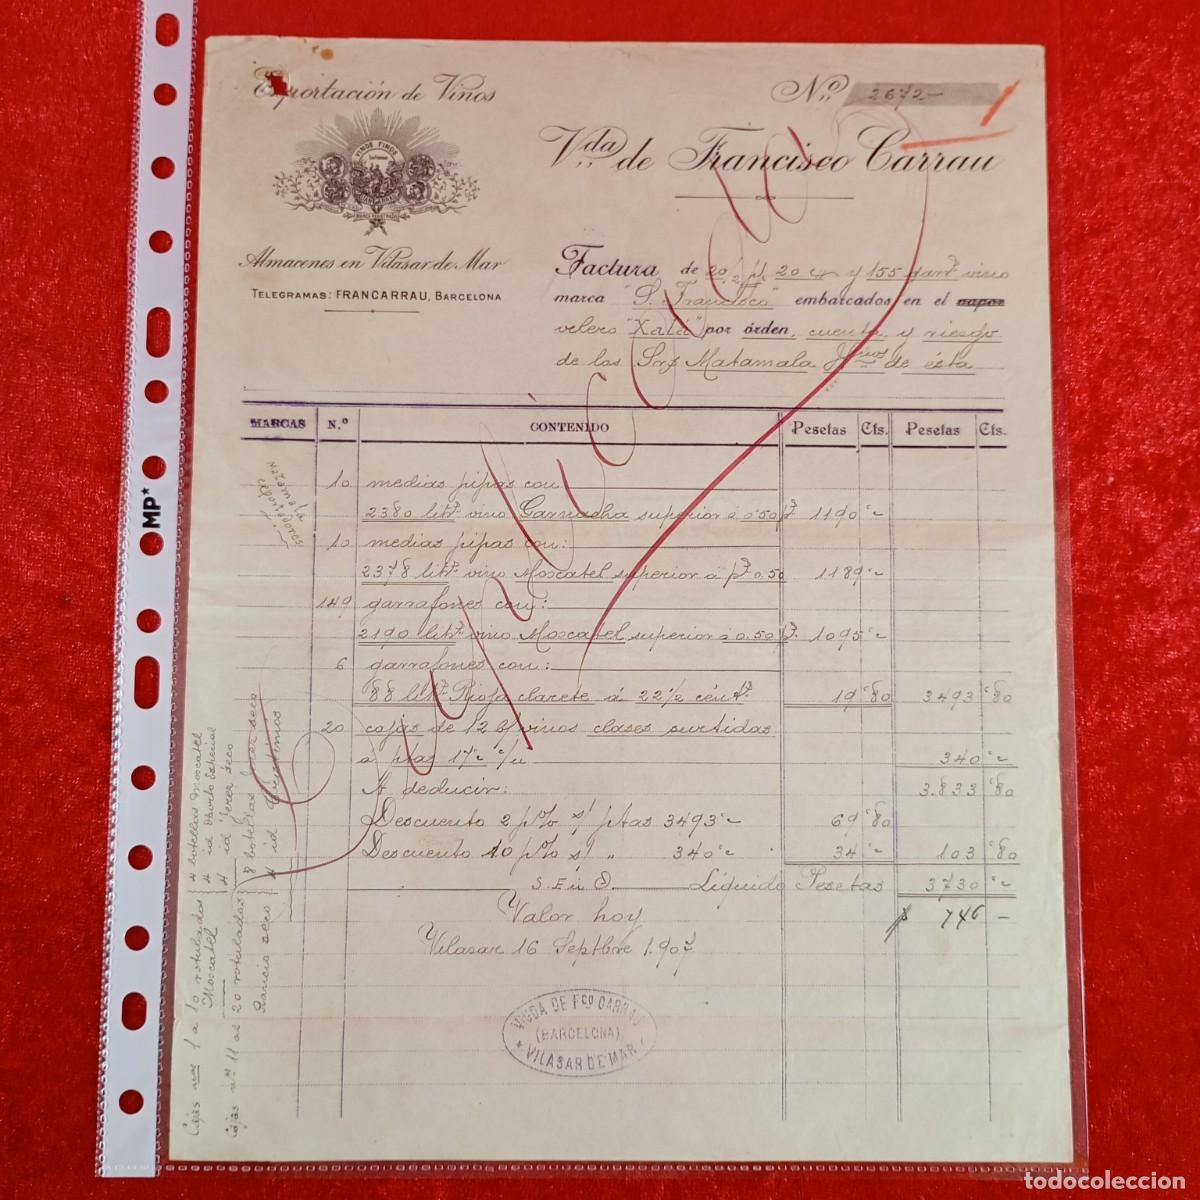 Exportación de Vinos
Nº 2672-
Vda de Francisco Carrau
VINOS FINOS
MARCA REGISTRADA
Almacenes en Vilasar de Mar
TELEGRAMAS: FRANCARRAU, BARCELONA
Factura de 20/2 p. 20 c/ y 155 garrs vino
marca "S. Francisco" embarcados en el vapor
velero "Xalá" por órden, cuenta y riesgo
de los Srs Matamala Hnos de ésta
MARCAS N.º CONTENIDO Pesetas Cts. Pesetas Cts.
10 medias pipas con
2380 lits. vino Garnacha superior á 0'50 p. 1190 "
10 medias pipas con:
2378 lits. vino Moscatel superior á p. 0,50 1189 "
149 garrafones con:
2190 lits. vino Moscatel superior á 0.50 p. 1095 "
6 garrafones con:
88 lits. Rioja clarete á 22½ cénts. 19 80 3493 80
20 cajas de 12 b/ vinos clases surtidas
a ptas 17 " c/u 340 "
A deducir: 3.833 80
Descuento 2 p% s/ ptas 3493 " 69 80
Descuento 10 p% s/ " 340 " 34 " 103 80
S. E ú O. Líquido Pesetas 3730 "
$ 746 -
Valor hoy
Vilasar 16 Septbre 1.907
VIUDA DE Fco CARRAU
(BARCELONA)
* VILASAR DE MAR *
Cajas nos 1 a 10 rotulados
Moscatel
4 botellas Moscatel
4 id Oporto Especial
4 id Jerez seco
Cajas nos 11 al 20 rotulados
Rancio seco
8 botellas
4 id
MP*
todocoleccion